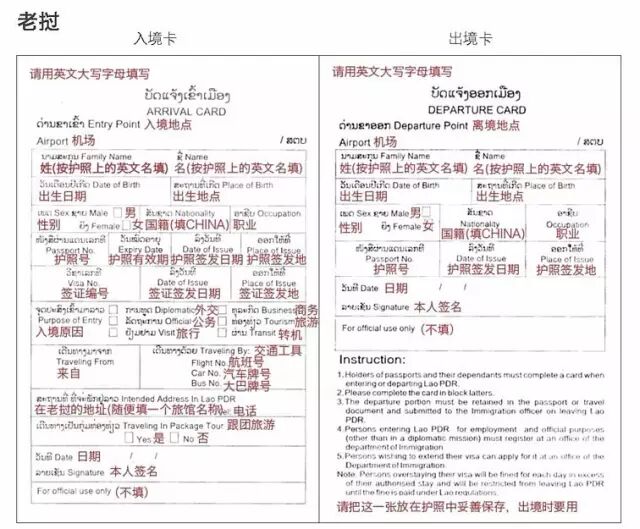 老挝
入境卡
请用英文大写字母填写
ບັດແຈ້ງເຂົ້າເມືອງ
ARRIVAL CARD
ດ່ານຂາເຂົ້າ Entry Point 入境地点
Airport 机场 / ສຕບ
ນາມສະກຸນ Family Name ຊື່ Name
姓(按护照上的英文名填) 名(按护照上的英文名填)
ວັນເດືອນປີເກີດ Date of Birth ສະຖານທີ່ເກີດ Place of Birth
出生日期 出生地点
ເພດ Sex ຊາຍ Male 男 ສັນຊາດ Nationality ອາຊີບ Occupation
性别 ຍິງ Female 女 国籍(填CHINA) 职业
ໜັງສືຜ່ານແດນເລກທີ ວັນໝົດອາຍຸ ລົງວັນທີ ອອກໃຫ້ທີ່
Passport No. Expiry Date Date of Issue Place of Issue
护照号 护照有效期 护照签发日期 护照签发地
ວີຊາເລກທີ ລົງວັນທີ ອອກໃຫ້ທີ່
Visa No. Date of Issue Place of Issue
签证编号 签证签发日期 签证签发地
ຈຸດປະສົງເຂົ້າມາລາວ ການທູດ Diplomatic 外交 ທຸລະກິດ Business 商务
Purpose of Entry ລັດຖະການ Official 公务 ທ່ອງທ່ຽວ Tourism 旅游
入境原因 ຢ້ຽມຢາມ Visit 旅行 ຜ່ານ Transit 转机
ເດີນທາງມາຈາກ ເດີນທາງດ້ວຍ Traveling By: 交通工具
Traveling From Flight No. 航班号
来自 Car No. 汽车牌号
Bus No. 大巴牌号
ສະຖານທີ່ ທີ່ຈະພັກຢູ່ລາວ Intended Address In Lao PDR
在老挝的地址(随便填一个旅馆名称) Tel: 电话
ເດີນທາງເປັນກຸ່ມທ່ອງທ່ຽວ Traveling In Package Tour 跟团旅游
Yes 是 No 否
ວັນທີ Date 日期 / /
ລາຍເຊັນ Signature 本人签名
For official use only (不填)
出境卡
请用英文大写字母填写
ບັດແຈ້ງອອກເມືອງ
DEPARTURE CARD
ດ່ານຂາອອກ Departure Point 离境地点
Airport 机场 / ສຕບ
ນາມສະກຸນ Family Name ຊື່ Name
姓(按护照上的英文名填) 名(按护照上的英文名填)
ວັນເດືອນປີເກີດ Date of Birth ສະຖານທີ່ເກີດ Place of Birth
出生日期 出生地点
ເພດ Sex ຊາຍ Male 男 ສັນຊາດ Nationality ອາຊີບ Occupation
性别 ຍິງ Female 女 国籍(填CHINA) 职业
ໜັງສືຜ່ານແດນເລກທີ ລົງວັນທີ ອອກໃຫ້ທີ່
Passport No. Date of Issue Place of Issue
护照号 护照签发日期 护照签发地
ວັນທີ Date 日期 / /
ລາຍເຊັນ Signature 本人签名
For official use only (不填)
Instruction:
1.Holders of passports and their dependants must complete a card when
entering or departing Lao PDR.
2.Please complete the card in block latters.
3.The departure portion must be retained in the passport or travel
document and submitted to the Immigration officer on leaving Lao
PDR.
4.Persons entering Lao PDR for employment and official purposes
(other than in a diplomatic mission) must register at an office of the
department of Immigration
5.Persons wishing to extend their visa can apply for it at an office of the
Department of Immigration.
Note. Persons overstaying their visa will be fined for each day in excess
of their authorised stay and will be restricted from leaving Lao PDR
until the fine is paid under Lao regulations.
请把这一张放在护照中妥善保存，出境时要用